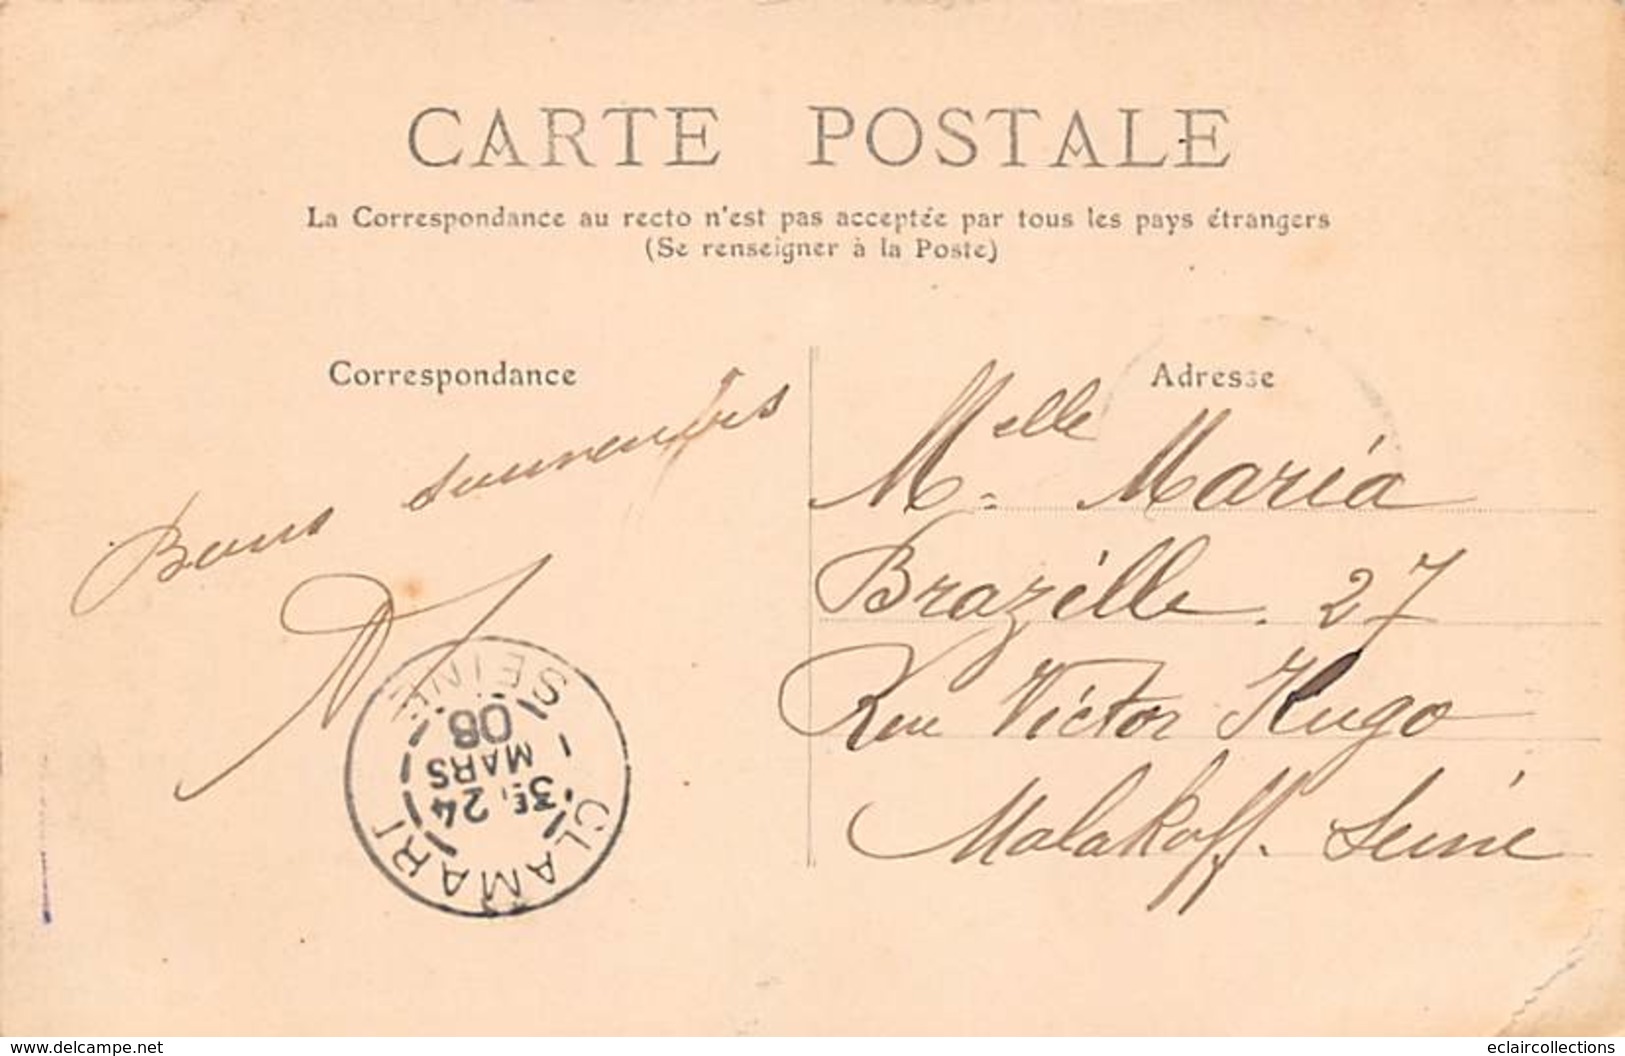 CARTE POSTALE
La Correspondance au recto n'est pas acceptée par tous les pays étrangers
(Se renseigner à la Poste)
Correspondance
Bons souvenirs
Adresse
Melle Maria
Brazille. 27
Rue Victor Hugo
Malakoff. Seine
CLAMART
3E, 24
MARS
08
SEINE
www.delcampe.net
eclaircollections